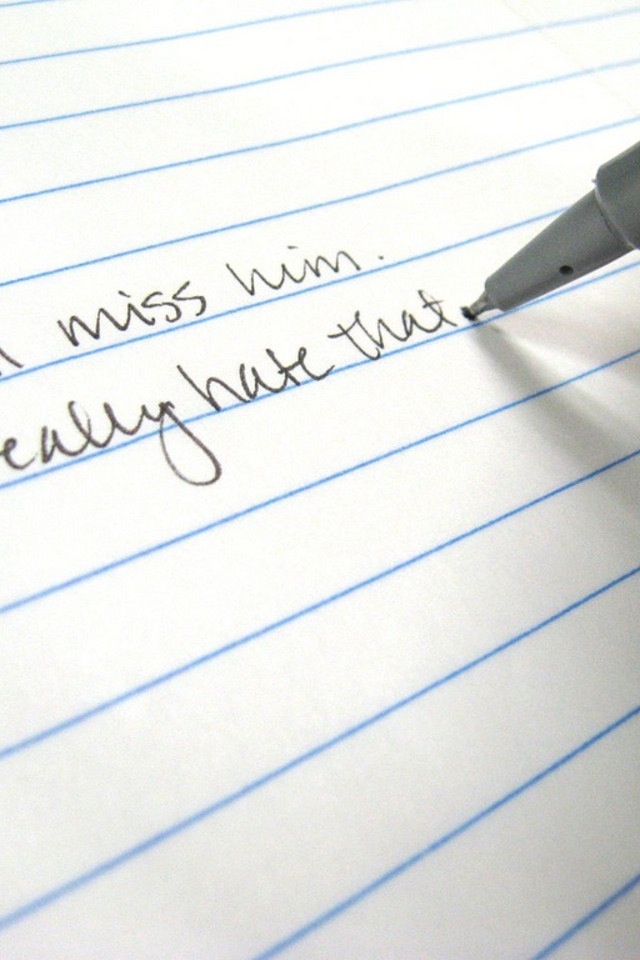 miss him.
eally hate that.